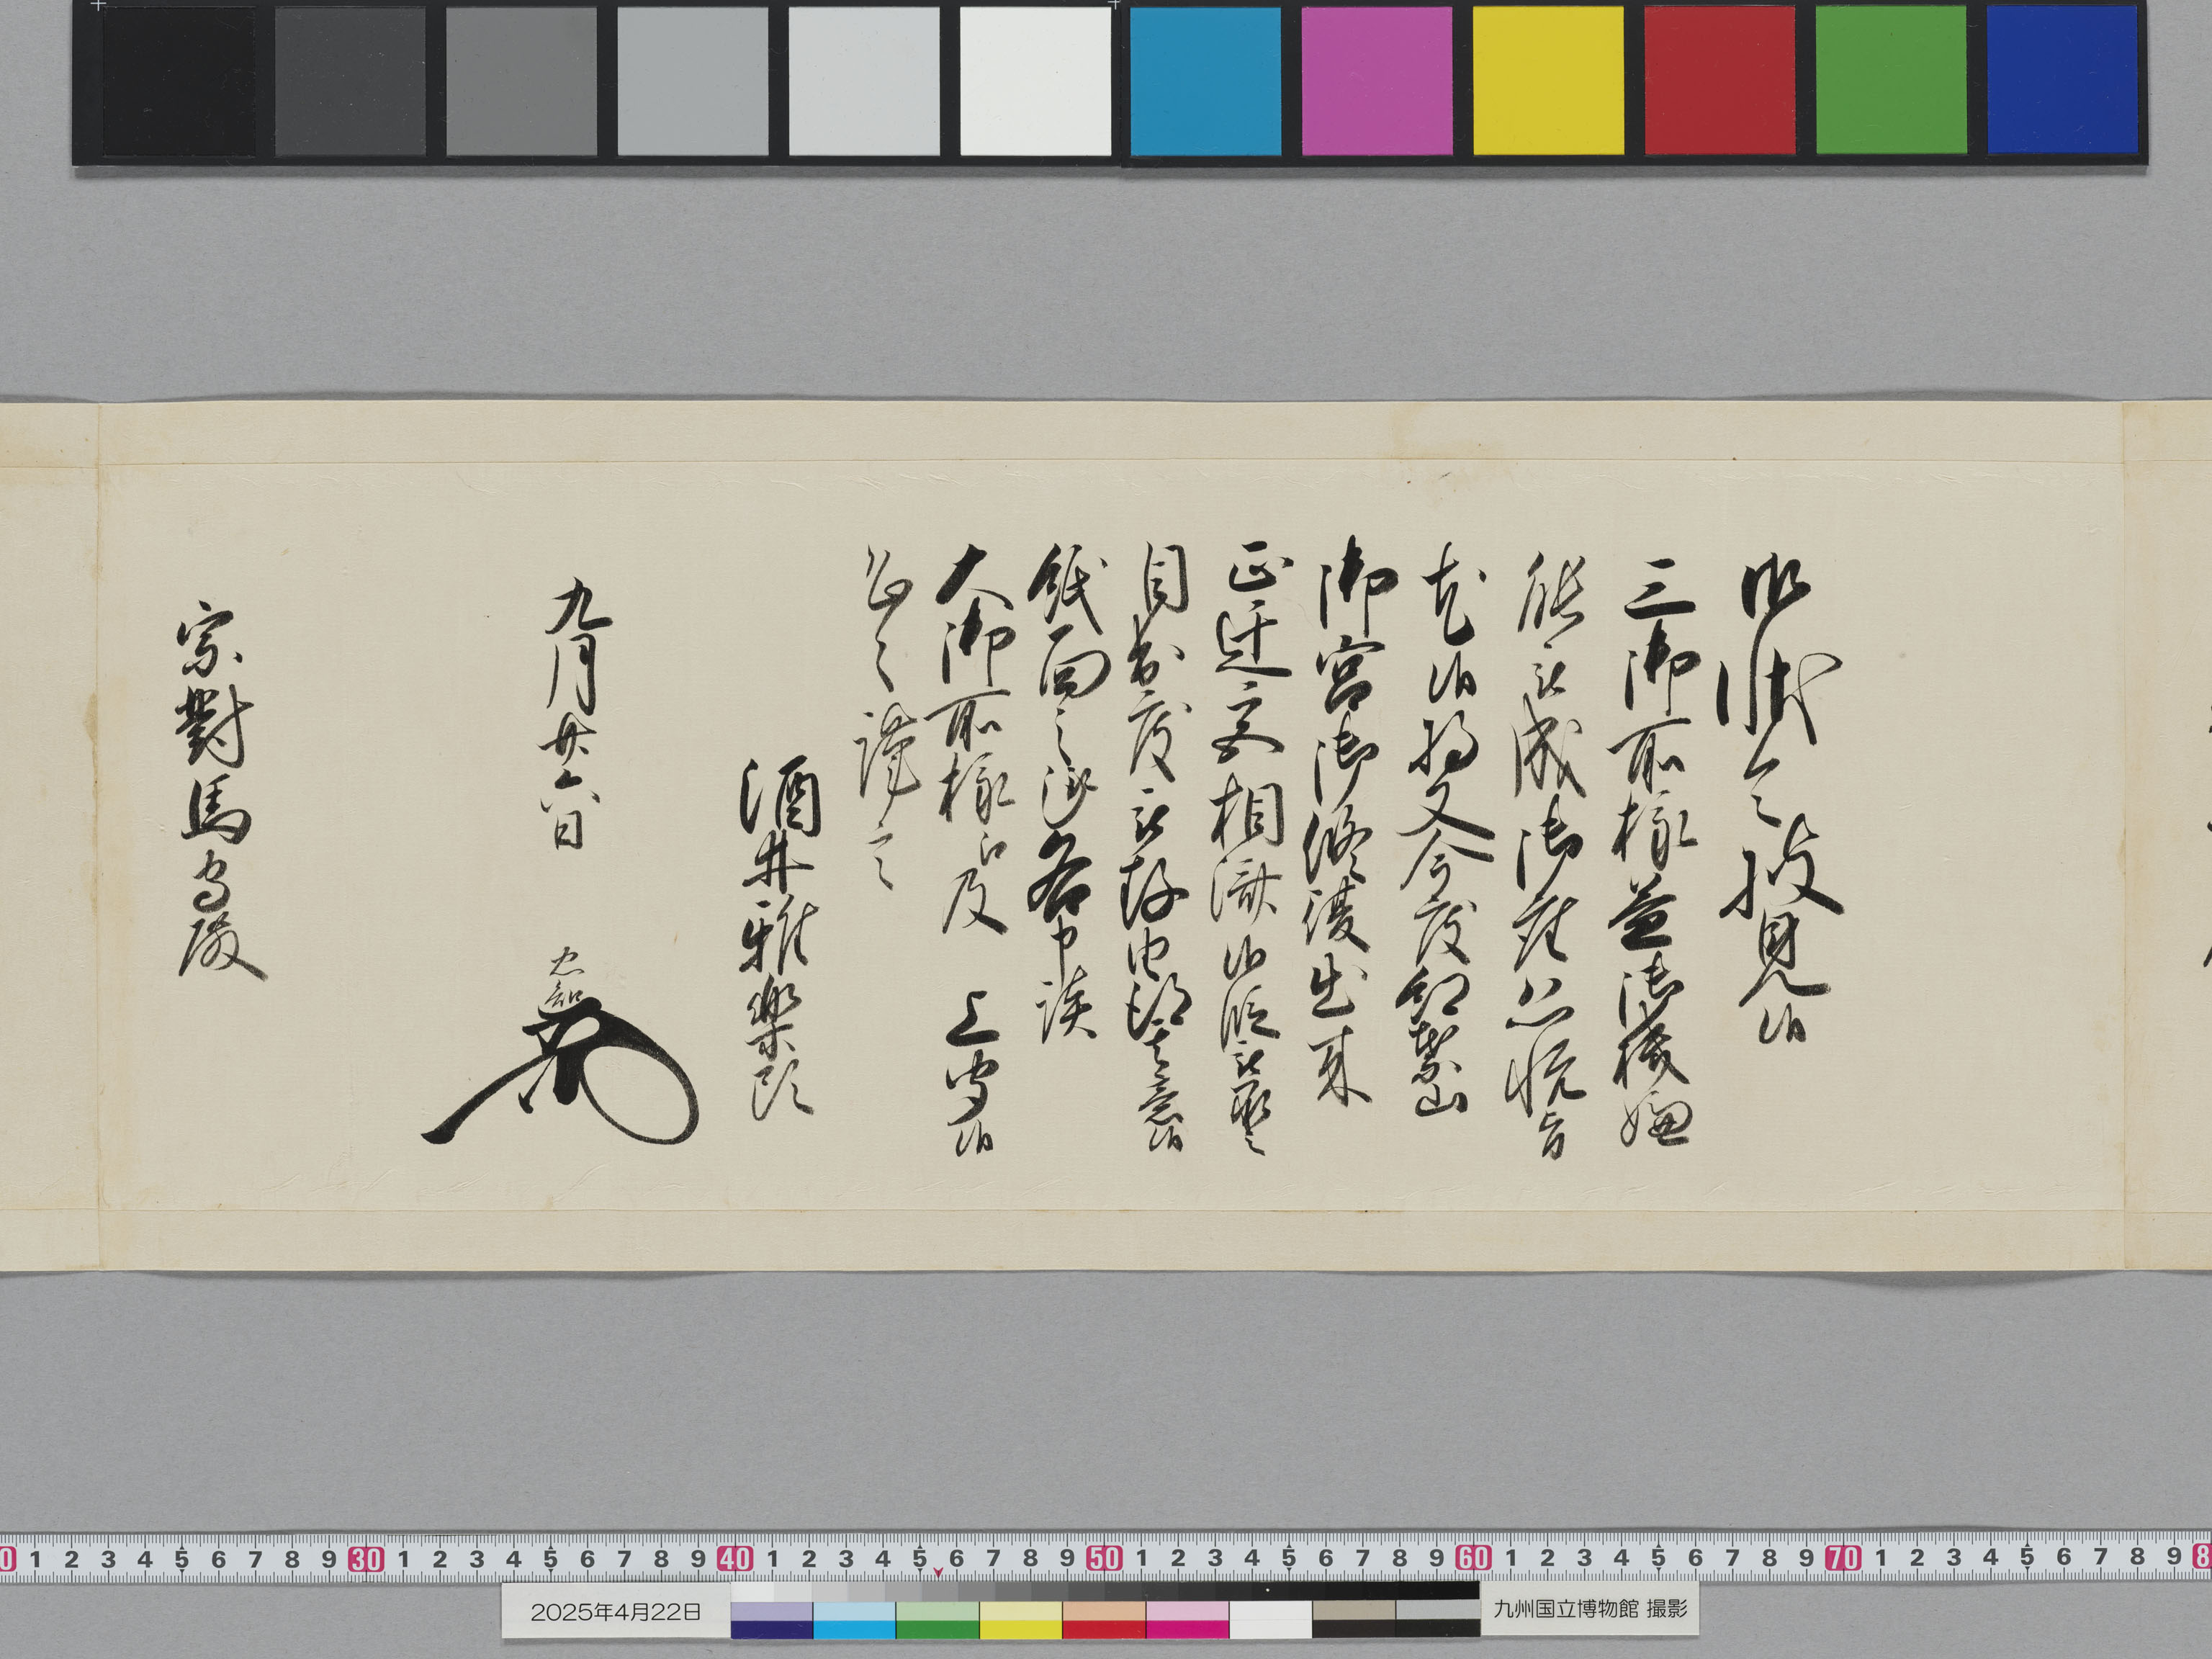 御状令披見候
三御所様益御機嫌
能被成御座恐悦旨
尤候将又今度紅葉山
御宮御修覆出来
正遷宮相濟候段被承之
目出度被存由得其意候
紙面之趣各申談
大御所様江及 上聞候
恐々謹言
酒井雅樂頭
九月廿六日 忠知
宗對馬守殿
0 1 2 3 4 5 6 7 8 9 30 1 2 3 4 5 6 7 8 9 40 1 2 3 4 5 6 7 8 9 50 1 2 3 4 5 6 7 8 9 60 1 2 3 4 5 6 7 8 9 70 1 2 3 4 5 6 7 8 9 8
2025年4月22日
九州国立博物館 撮影